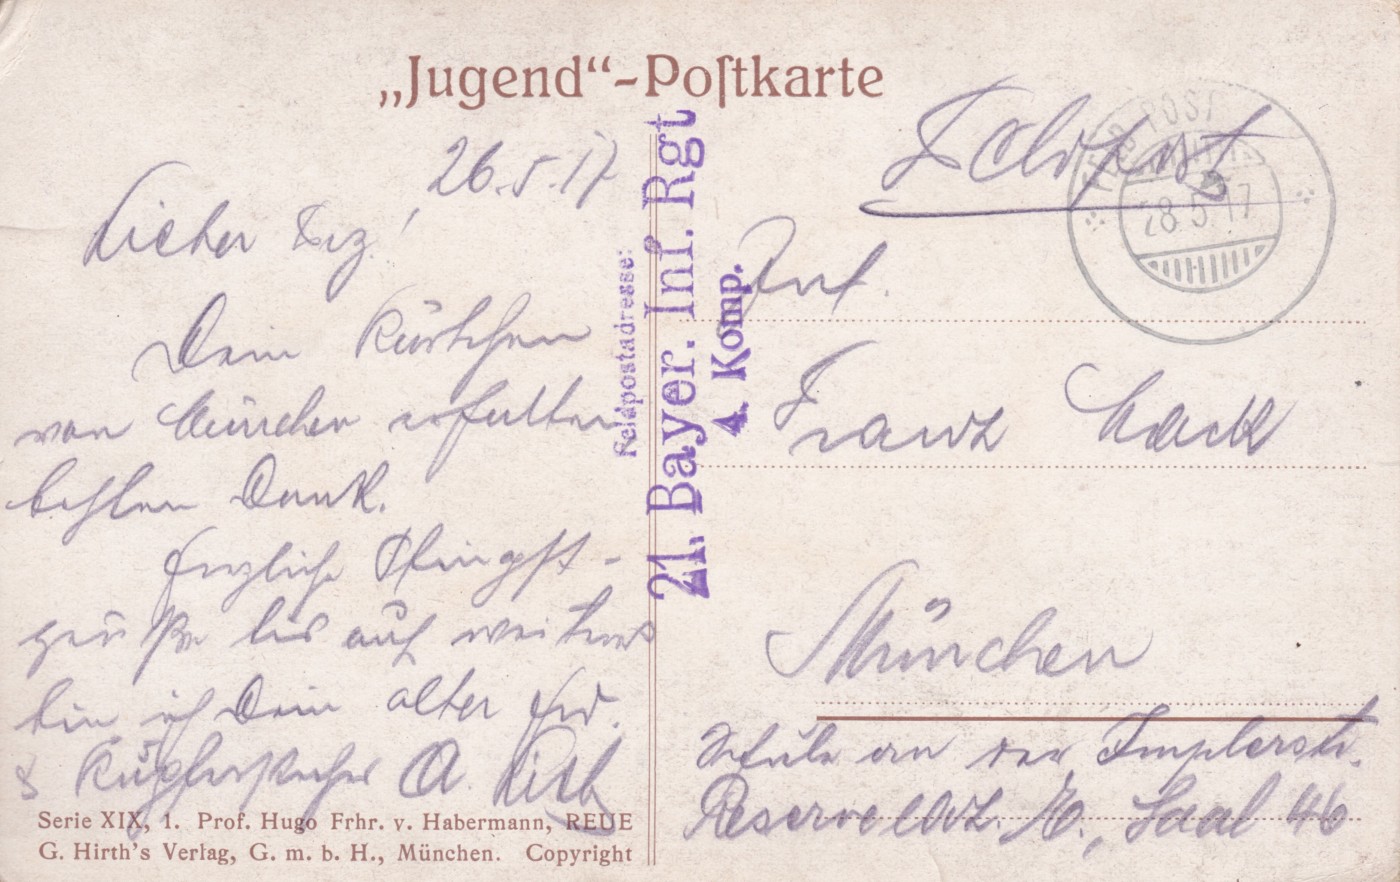 „Jugend“-Poſtkarte
26.5.17
Lieber Frz!
Dein Kärtchen
von München erhalten
besten Dank.
Herzliche Pfingst-
grüße bis auf weiteres
bin ich Dein alter Frd.
&
A.
Serie XIX, 1. Prof. Hugo Frhr. v. Habermann, REUE
G. Hirth's Verlag, G. m. b. H., München. Copyright
Feldpostadresse:
21. Bayer. Inf. Rgt
4. Komp.
Feldpost
FELDPOST
28.5.17
Inf.
Franz
München
Schule an der Implerstr.
Reserve Laz. , Saal 46